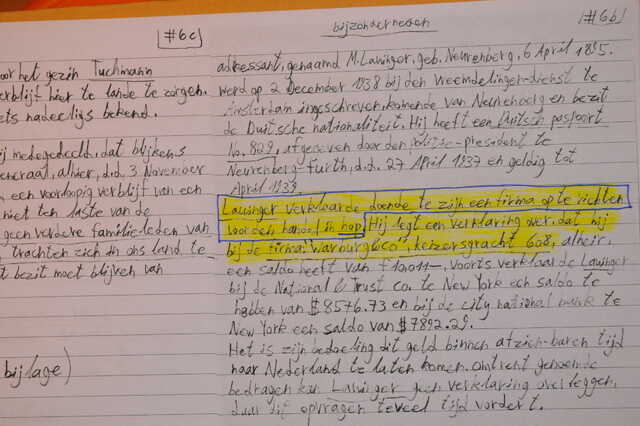 |#6c|
voor het gezin Tuchmann
verblijft hier te lande te zorgen.
iets nadeligs bekend.
ij medegedeeld, dat blijkens
generaal, alhier, d.d. 3 November
, een voorlopig verblijf van een
niet ten laste van de
geen verdere familie leden van
, trachten zich in ons land te
t bezit moet blijken van
bijlage)
|#6b|
bijzonderheden
adressant, genaamd M. Lauinger, geb. Neurenberg, 6 April 1895.
werd op 2 December 1938 bij den vreemdelingen-dienst te
Amsterdam ingeschreven, komende van Neurenberg en bezit
de Duitsche nationaliteit. Hij heeft een Duitsch paspoort
No. 829, afgegeven door den politie-president te
Neurenberg-Furth, d.d. 27 April 1937 en geldig tot
April 1939.
Lauinger verklaarde doende te zijn een firma op te richten
voor een handel in hop. Hij legt een verklaring over, dat hij
bij de firma: Warburg & co", keizersgracht 608, alhier,
een saldo heeft van f10.011—, voorts verklaarde Lauinger
bij de National & Trust co. te New York een saldo te
hebben van $8576.73 en bij de city national bank te
New York een saldo van $7892.29.
Het is zijn bedoeling dit geld binnen afzien-baren tijd
naar Nederland te laten komen. omtrent genoemde
bedragen kan Lauinger geen verklaring overleggen,
daar dit opvragen teveel tijd vordert.